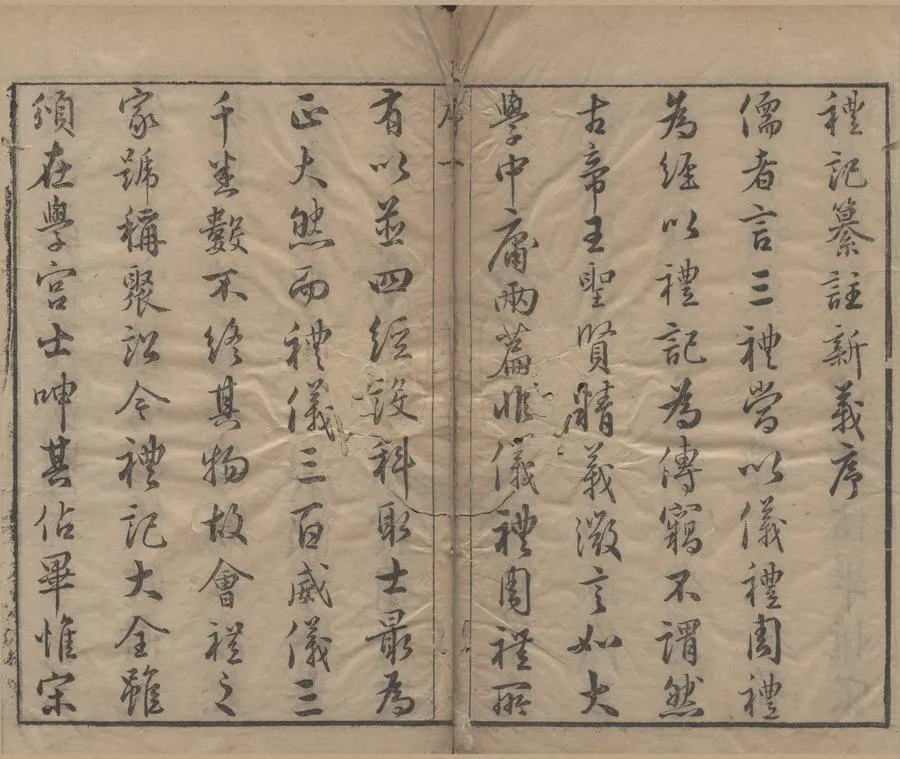 禮記纂註新義序
儒者言三禮當以儀禮周禮
為經以禮記為傳竊不謂然
古帝王聖賢精義微言如大
學中庸兩篇非儀禮周禮所
序一
有以並四經設科取士最為
正大然而禮儀三百威儀三
千悉數不終其物故會禮之
家號稱聚訟今禮記大全雖
頒在學宮士呻其佔畢惟宋